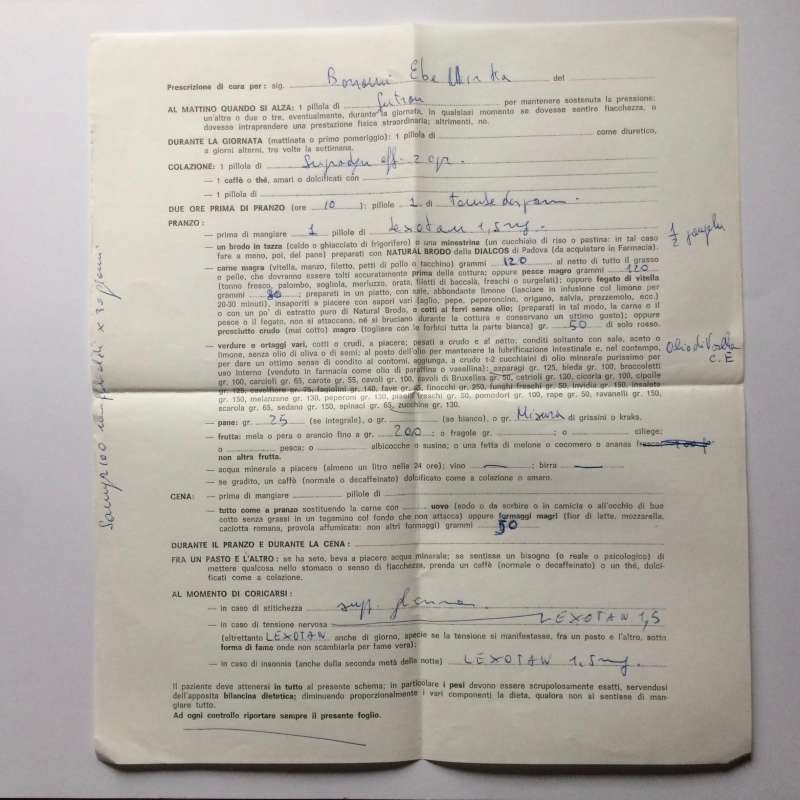 Prescrizione di cura per: sig. Ebe Mirka del
AL MATTINO QUANDO SI ALZA: 1 pillola di per mantenere sostenuta la pressione;
un'altro o due o tre, eventualmente, durante la giornata, in qualsiasi momento se dovesse sentire fiacchezza, o
dovesse intraprendere una prestazione fisica straordinaria; altrimenti, no.
DURANTE LA GIORNATA (mattinata o primo pomeriggio): 1 pillola di come diuretico,
a giorni alterni, tre volte la settimana.
COLAZIONE: 1 pillola di Supradyn eff. 2 cpr.
— 1 caffè o thé, amari o dolcificati con
— 1 pillola di
DUE ORE PRIMA DI PRANZO (ore 10): pillole 1 di
PRANZO:
— prima di mangiare 1 pillole di Lexotan 1,5 mg.
— un brodo in tazza (caldo o ghiacciato di frigorifero) o una minestrina (un cucchiaio di riso o pastina: in tal caso
fare a meno, poi, del pane) preparati con NATURAL BRODO della DIALCOS di Padova (da acquistare in Farmacia).
1/2
— carne magra (vitella, manzo, filetto, petti di pollo o tacchino) grammi 120 al netto di tutto il grasso
o pelle, che dovranno essere tolti accuratamente prima della cottura; oppure pesce magro grammi 120
(tonno fresco, palombo, sogliola, merluzzo, orata, filetti di baccalà, freschi o surgelati); oppure fegato di vitella
grammi 80; preparati in un piatto, con sale, abbondante limone (lasciare in infusione col limone per
20-30 minuti), insaporiti a piacere con sapori vari (aglio, pepe, peperoncino, origano, salvia, prezzemolo, ecc.)
o con un po' di estratto puro di Natural Brodo, o cotti ai ferri senza olio; (preparati in tal modo, la carne o il
pesce o il fegato, non si attaccano, né si bruciano durante la cottura e conservano un ottimo gusto); oppure
prosciutto crudo (mai cotto) magro (togliere con le forbici tutta la parte bianca) gr. 50 di solo rosso.
— verdure e ortaggi vari, cotti o crudi, a piacere; pesati a crudo e al netto; conditi soltanto con sale, aceto o
limone, senza olio di oliva o di semi; al posto dell'olio per mantenere la lubrificazione intestinale e, nel contempo,
per dare un ottimo senso di condito ai contorni, aggiunga, a crudo 1-2 cucchiaini di olio minerale purissimo per
uso interno (venduto in farmacia come olio di paraffina o vasellina): asparagi gr. 125, bieda gr. 100, broccoletti
Olio di Vasella
C.E
gr. 100, carciofi gr. 65, carote gr. 55, cavoli gr. 100, cavoli di Bruxelles gr. 50, cetrioli gr. 130, cicoria gr. 100, cipolle
gr. 125, cavolfiore gr. 75, fagiolini gr. 140, fave gr. 65, finocchi gr. 250, funghi freschi gr. 50, invidia gr. 150, insalata
gr. 150, melanzane gr. 130, peperoni gr. 130, piselli freschi gr. 50, pomodori gr. 100, rape gr. 50, ravanelli gr. 150,
scarola gr. 65, sedano gr. 150, spinaci gr. 65, zucchine gr. 130.
— pane: gr. 25 (se integrale), o gr. (se bianco), o gr. Misura di grissini o kraks.
— frutta: mela o pera o arancio fino a gr. 200; o fragole gr. ; o ciliege;
o pesca; o albicocche o susine; o una fetta di melone o cocomero o ananas
non altra frutta.
— acqua minerale a piacere (almeno un litro nelle 24 ore); vino — ; birra —
— se gradito, un caffè (normale o decaffeinato) dolcificato come a colazione o amaro.
CENA: — prima di mangiare pillole di
— tutto come a pranzo sostituendo la carne con uovo (sodo o da sorbire o in camicia o all'occhio di bue
cotto senza grassi in un tegamino col fondo che non attacca) oppure formaggi magri (fior di latte, mozzarella,
caciotta romana, provola affumicata: non altri formaggi) grammi 50
DURANTE IL PRANZO E DURANTE LA CENA:
FRA UN PASTO E L'ALTRO: se ha sete, beva a piacere acqua minerale; se sentisse un bisogno (o reale o psicologico) di
mettere qualcosa nello stomaco o senso di fiacchezza, prenda un caffè (normale o decaffeinato) o un thé, dolci-
ficati come a colazione.
AL MOMENTO DI CORICARSI:
— in caso di stitichezza supp. glicerina
— in caso di tensione nervosa LEXOTAN 1,5
(altrettanto LEXOTAN anche di giorno, specie se la tensione si manifestasse, fra un pasto e l'altro, sotto
forma di fame onde non scambiarla per fame vera):
— in caso di insonnia (anche dulla seconda metà della notte) LEXOTAN 1,5 mg.
Il paziente deve attenersi in tutto al presente schema; in particolare i pesi devono essere scrupolosamente esatti, servendosi
dell'apposita bilancina dietetica; diminuendo proporzionalmente i vari componenti la dieta, qualora non si sentisse di man-
giare tutto.
Ad ogni controllo riportare sempre il presente foglio.